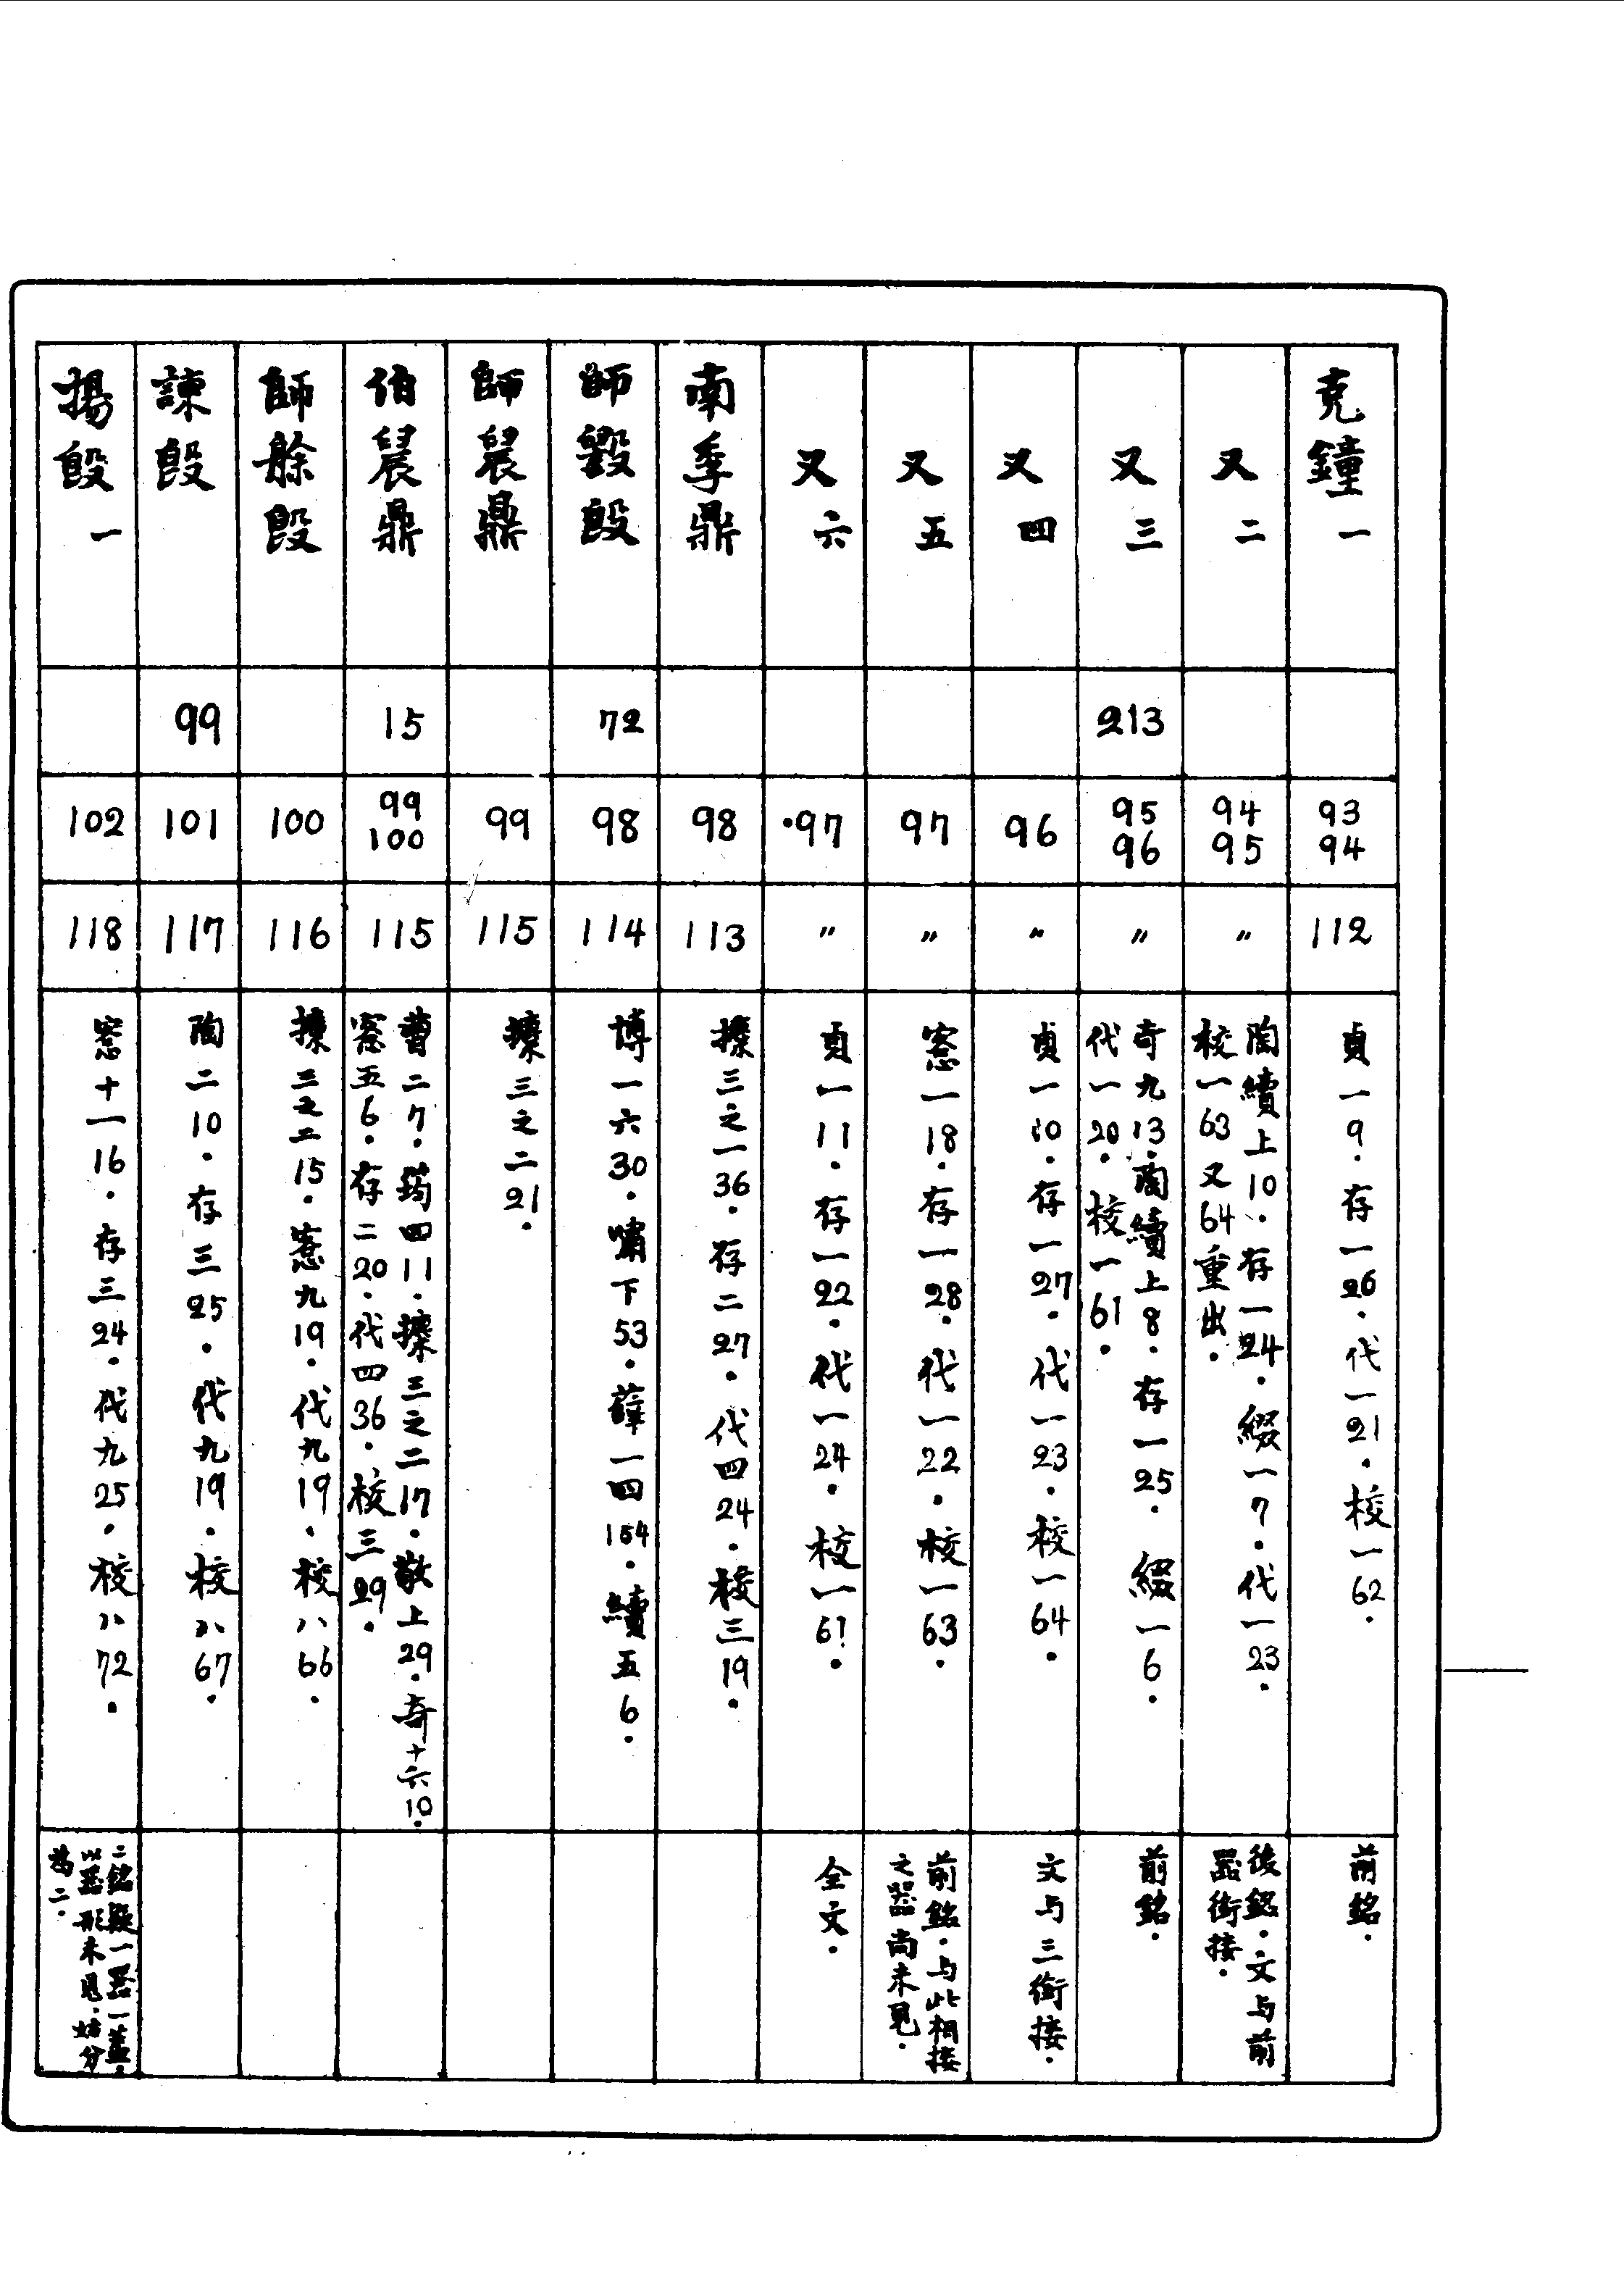 克鐘一
93
94
112
貞一9．存一26．代一21．校一62．
前銘．
又二
94
95
〃
陶續上10．存一24．綴一7．代一23．
校一63又64重出．
後銘．文与前
器銜接．
又三
213
95
96
〃
奇九13．陶續上8．存一25．綴一6．
代一20．校一61．
前銘．
又四
96
〃
貞一10．存一27．代一23．校一64．
文与三銜接．
又五
97
〃
愙一18．存一28．代一22．校一63．
前銘．与此相接
之器尚未見．
又六
97
〃
貞一11．存一22．代一24．校一61．
全文．
南季鼎
98
113
攈三之一36．存二27．代四24．校三19．
師㝅𣪘
72
98
114
博一六30．嘯下53．薛一四154．續五6．
師晨鼎
99
115
攈三之二21．
伯晨鼎
15
99
100
115
曹二7．筠四11．攈三之二17．敬上29．奇十六10．
愙五6．存二20．代四36．校三29．
師艅𣪘
100
116
攈三之二15．愙九19．代九19．校八66．
諫𣪘
99
101
117
陶二10．存三25．代九19．校八67．
揚𣪘一
102
118
愙十一16．存三24．代九25．校八72．
二銘疑一器一蓋．
以器形未見．姑分
為二．